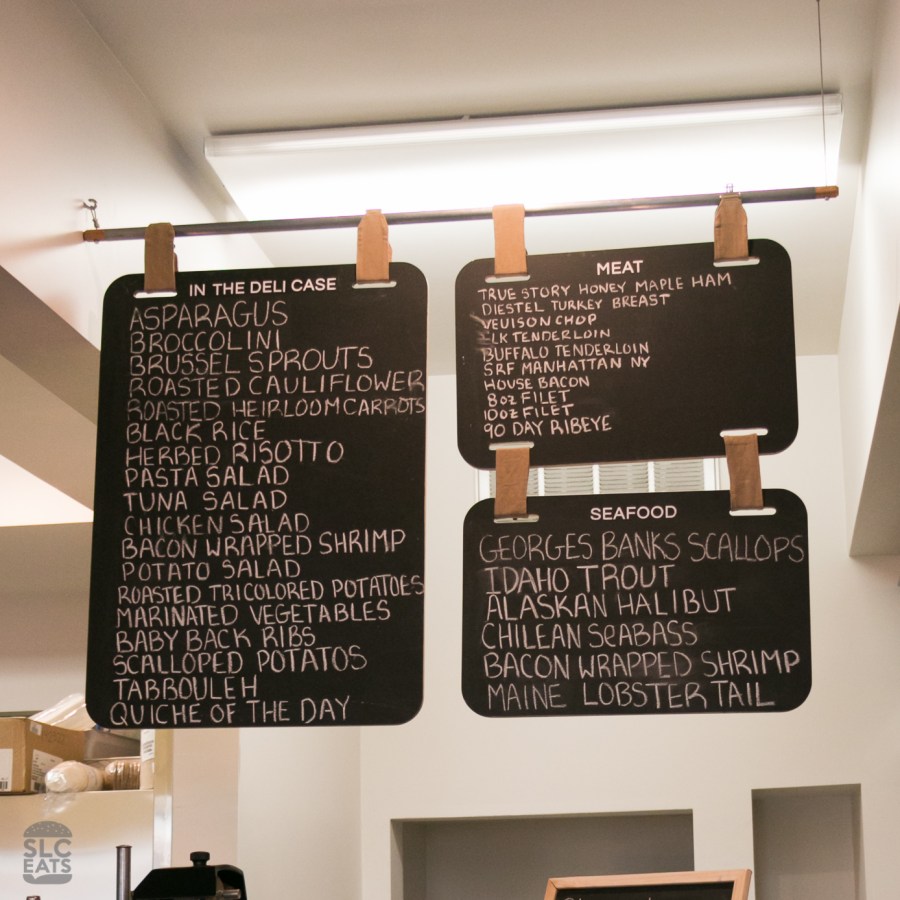 IN THE DELI CASE
ASPARAGUS
BROCCOLINI
BRUSSEL SPROUTS
ROASTED CAULIFLOWER
ROASTED HEIRLOOM CARROTS
BLACK RICE
HERBED RISOTTO
PASTA SALAD
TUNA SALAD
CHICKEN SALAD
BACON WRAPPED SHRIMP
POTATO SALAD
ROASTED TRICOLORED POTATOES
MARINATED VEGETABLES
BABY BACK RIBS
SCALLOPED POTATOS
TABBOULEH
QUICHE OF THE DAY
MEAT
TRUE STORY HONEY MAPLE HAM
DIESTEL TURKEY BREAST
VEUISON CHOP
ELK TENDERLOIN
BUFFALO TENDERLOIN
SRF MANHATTAN NY
HOUSE BACON
8oz FILET
10oz FILET
90 DAY RIBEYE
SEAFOOD
GEORGES BANKS SCALLOPS
IDAHO TROUT
ALASKAN HALIBUT
CHILEAN SeABASS
BACON WRAPPED SHRIMP
MAINE LOBSTER TAIL
SLC
EATS